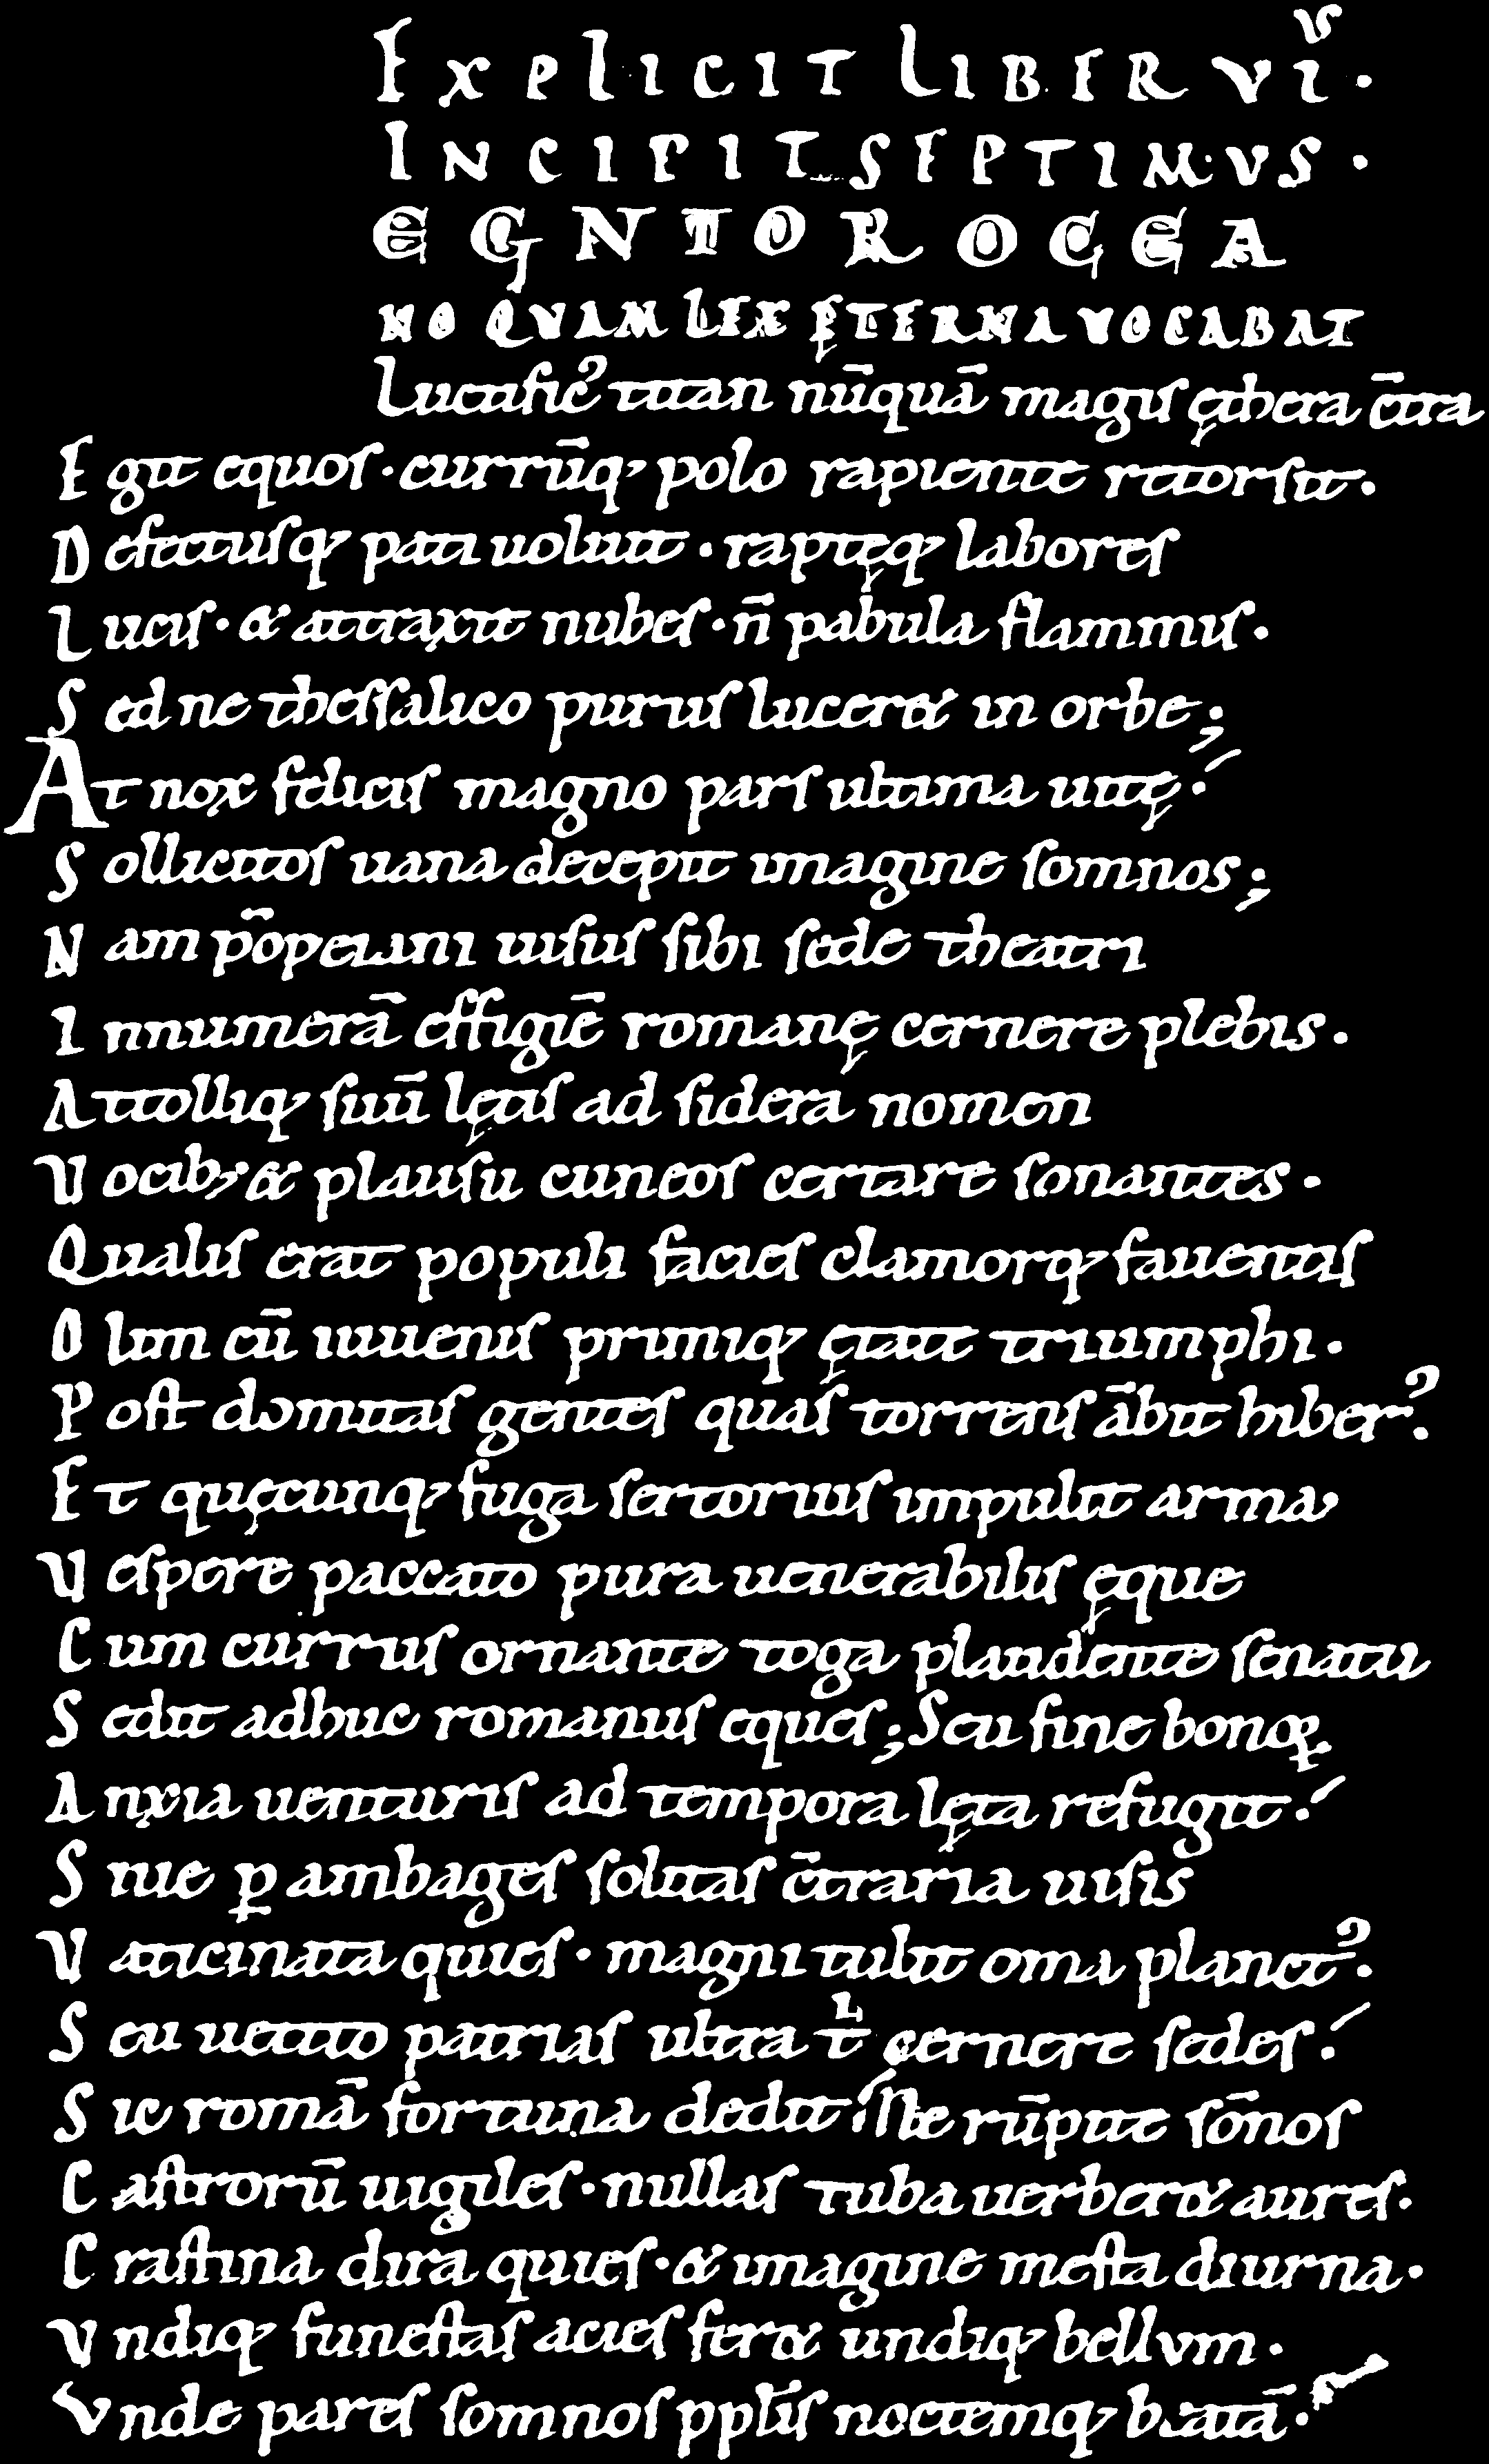 EXPLICIT LIBER VI᷒·
INCIPIT SEPTIMVS·
EGNIOR OCEA
NO QVAM LEX ĘTERNA VOCABAT
Luctific᾽ titan nūquā magis ęthera c̄tra
E git equos· currūq; polo rapiente retorsit·
D efectusq; pati uoluit· raptęq; labores
L ucis· & attraxit nubes· n̄ pabula flammis·
S ed ne thessalico purus luceret in orbe;
At nox felicis magno pars ultima uitę·
S ollicitos uana decepit imagine somnos;
N am pōpeiani uisus sibi sede theatri
I nnumerā effigiē romanę cernere plebis·
A ttolliq; suū lętis ad sidera nomen
V ocib; & plausu cuneos certare sonantes·
Qualis erat populi facies clamorq; fauentis
O lim cū iuuenis primiq; ętate triumphi·
P ost domitas gentes quas torrens ābit hiber᾽·
E t quęcunq; fuga sertorius impulit arma
V espere paccato pura uenerabilis ęque
C um currus ornante toga plaudente senatu
S edit adhuc romanus eques; Seu fine bonoꝝ
A nxia uenturis ad tempora lęta refugit·
S iue ꝑ ambages solitas c̄traria uisis
V aticinata quies· magni tulit om̄a planct᾽·
S eu uetito patrias ultra t cernere sedes·
S ic romā fortuna dedit· Ne rūpite sōnos
C astrorū uigiles· nullas tuba uerberet aures·
C rastina dira quies· & imagine mesta diurna·
V ndiq; funestas acies feret undiq; bellvm·
Vnde pares somnos ppl̄is noctemq; beatā·